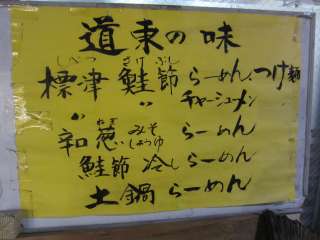 道東の味
しべつ さけ ぶし
標津 鮭節 らーめん、つけ麺
〃 チャーシューメン
ねぎ みそ しょうゆ
〃 辛葱 らーめん
鮭節 冷し らーめん
土鍋 らーめん